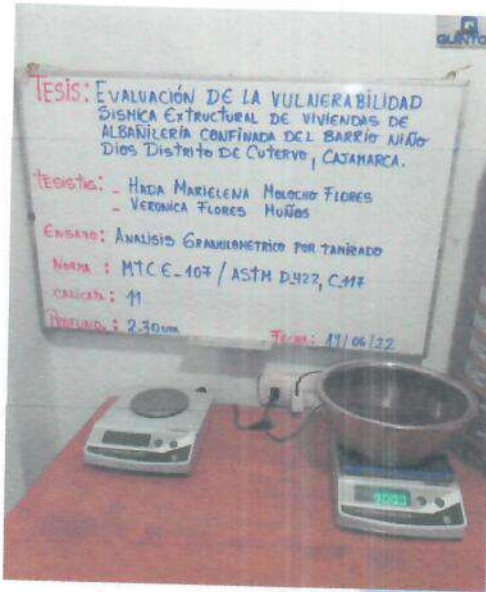 QUINTO
TESIS: EVALUACIÓN DE LA VULNERABILIDAD
SISMICA EXTRUCTURAL DE VIVIENDAS DE
ALBAÑILERÍA CONFINADA DEL BARRIO NIÑO
DIOS DISTRITO DE CUTERVO, CAJAMARCA.
TESISTAS: - HADA MARIELENA MOLOCHO FLORES
- VERONICA FLORES MUÑOS
ENSAYO: ANALISIS GRANULOMETRICO POR TAMIZADO
NORMA : MTC E-107 / ASTM D422, C117
CALICATA : 11
PROFUND. : 2.30
FECHA: /06/22